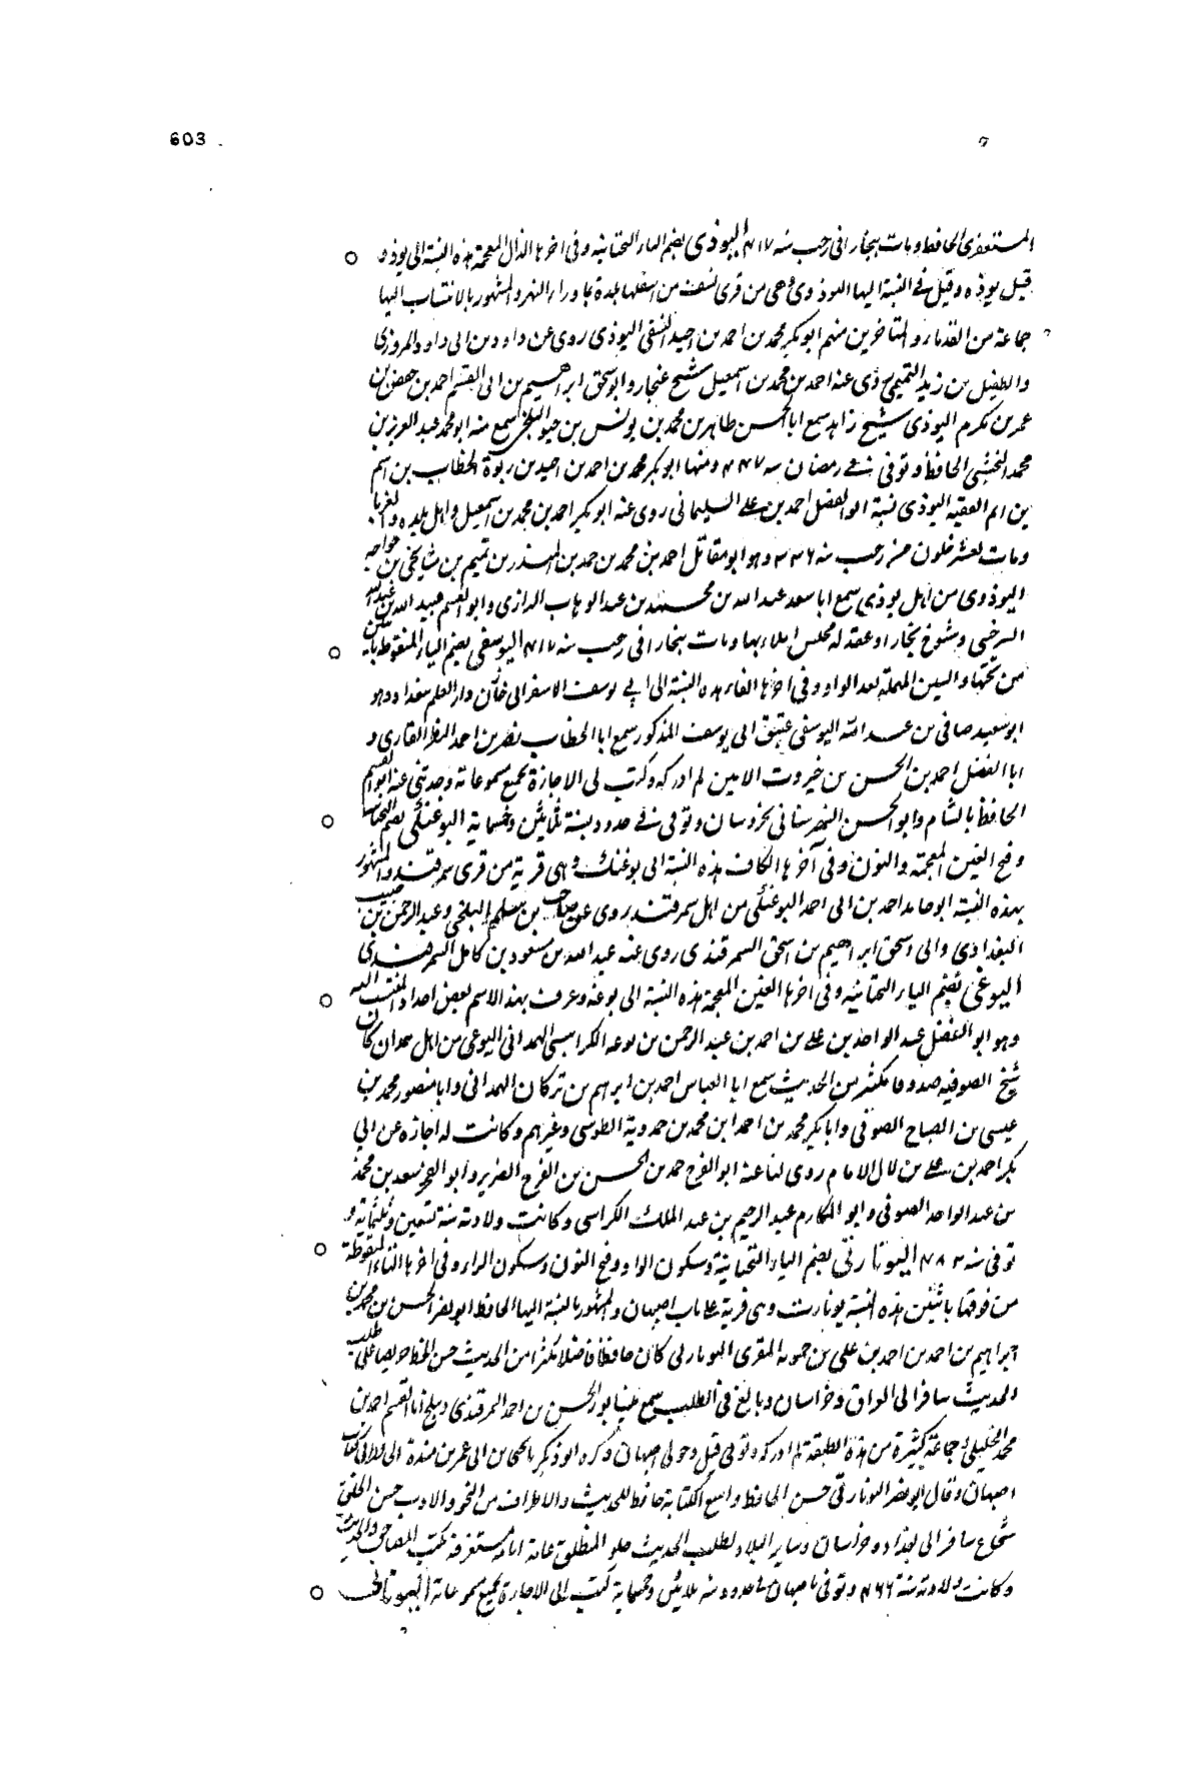 603
المستغفرى الحافظ ومات ببخارا فى رجب سنه ٤١٧ اليوذى بضم الياء التحتانيه وفى اخرها الذال المعجمة هذه النسبة الى يوذ و
قيل يوذه وقيل فى النسبة اليها اليوذوى وهى من قرى نسف من اسفلها بلدة بماوراء النهر والمشهور بالانتساب اليها
جماعة من القدماء والمتاخرين منهم ابو بكر محمد بن احمد بن احيد النسفى اليوذى روى عن داود بن ابى داود المروزى
والطفيل بن زيد التميمى روى عنه احمد بن محمد بن اسمعيل شيخ غنجار وابو اسحق ابرهيم بن ابى القسم احمد بن حفص بن
عمر بن مكرم اليوذى شيخ زاهد سمع ابا الحسن طاهر بن محمد بن يونس بن خيو البلخى سمع منه ابو محمد عبد العزيز بن
محمد النخشبى الحافظ وتوفى فى رمضان سنه ٤٤٧ ومنها ابو بكر محمد بن احمد بن احيد بن ربوة الخطاب بن
بن الفقيه اليوذى نسبة ابو الفضل احمد بن على السليمانى روى عنه ابو بكر احمد بن محمد بن اسمعيل واهل بلده
ومات لعشر خلون من رجب سنه ٣٣٦ وهو ابو مقاتل احمد بن محمد بن حمد بن المنذر بن تميم بن
اليوذوى من اهل يوذى سمع ابا سعد عبد الله بن محمد بن عبد الوهاب الرازى وابو القسم عبيد الله بن عبد الله
السرخسى وشيوخ بخارا وعقد له مجلس املاء بها ومات ببخارا فى رجب سنه ٤١٧ اليوسفى بضم الياء المنقوطة باثنتين
من تحتها والسين المهملة بعد الواو وفى اخرها الفاء هذه النسبة الى ابى يوسف الاسفرايى خازن دار العلم ببغداد وهو
ابو سعيد صافى بن عبد الله اليوسفى عتيق ابى يوسف المذكور سمع ابا الخطاب نصر بن احمد البطر القارى و
ابا الفضل احمد بن الحسن بن خيرون الامين لم ادركه وكتب لى الاجازة بجميع مسموعاته وحدثنى عنه ابو القسم
الحافظ بالشام وابو الحسن الشهرستانى بخراسان وتوفى فى حدود سنة ثلاثين وخمسماية اليوغنكى بضم
وفتح الغين المعجمة والنون وفى آخرها الكاف هذه النسبة الى يوغنك وهى قرية من قرى سمرقند والمشهور
بهذه النسبة ابو حامد احمد بن ابى احمد اليوغنكى من اهل سمرقند روى عن صباح بن مسلم البلخى وعبد الرحمن بن حبيب
البغدادى وابى اسحق ابرهيم بن اسحق السمرقندى روى عنه عبد الله بن مسعود بن كامل السمرقندى
اليوغى بضم الياء التحتانيه وفى اخرها الغين المعجمة هذه النسبة الى يوغه وعرف بهذا الاسم بعض اجداد المنتسب اليه
وهو ابو الفضل عبد الواحد بن على بن احمد بن عبد الرحمن بن يوغه الكرابيسى الهمدانى اليوغى من اهل همدان كان
شيخ الصوفيه صدوقا مكثر من الحديث سمع ابا العباس احمد بن ابرهيم بن تركان الهمدانى وابا منصور محمد بن
عيسى بن الصباح الصوفى وابا بكر محمد بن احمد ابن محمد بن حمدوية الطوسى وغيرهم وكانت له اجازه عن ابى
بكر احمد بن على بن لال الامام روى لنا عنه ابو الفرح حمد بن الحسن بن الفرج الضرير وابو الفخر سعد بن محمد
بن عبد الواحد الصوفى وابو المكارم عبد الرحيم بن عبد الملك الكرابيسى وكانت ولادته سنة تسعين وثلثماية و
توفى سنه ٤٨٣ اليونارتى بضم الياء التحتانية وسكون الواو وفتح النون وسكون الراء وفى اخرها التاء المنقوطة
من فوقها باثنين هذه النسبة يونارت وهى قرية على باب اصبهان والمشهور بالنسبة اليها الحافظ ابو نصر الحسن بن محمد بن
ابراهيم بن احمد بن احمد بن على بن حمويه المقرى اليونارتى كان حافظا فاضلا مكثرا من الحديث حسن الخط حريصا على طلب
الحديث سافر الى العراق وخراسان وبالغ فى الطلب سمع بنيسابور الحسن بن احمد السمرقندى وببلخ ابا القسم احمد بن
محمد الخليلى وجماعة كثيرة من هذه الطبقة لم ادركه وتوفى قبل دخولى اصبهان وذكره ابو زكريا يحيى بن ابى عمر بن مندة فى كتاب
اصبهان وقال ابو نصر اليونارتى حسن الحافظ واسع الكتابة حافظ للحديث والاطراف من النحو والادب حسن الخلق
شجاع سافر الى بغداد وخراسان وساير البلاد لطلب الحديث حلو المنطق عامة ايامه مستغرقة بكتب المصاحف والحديث
وكانت ولادته سنة ٤٦٦ وتوفى باصبهان فى حدود سنه ثلاثين وخمسماية كتب الى الاجازة بجميع مسموعاته